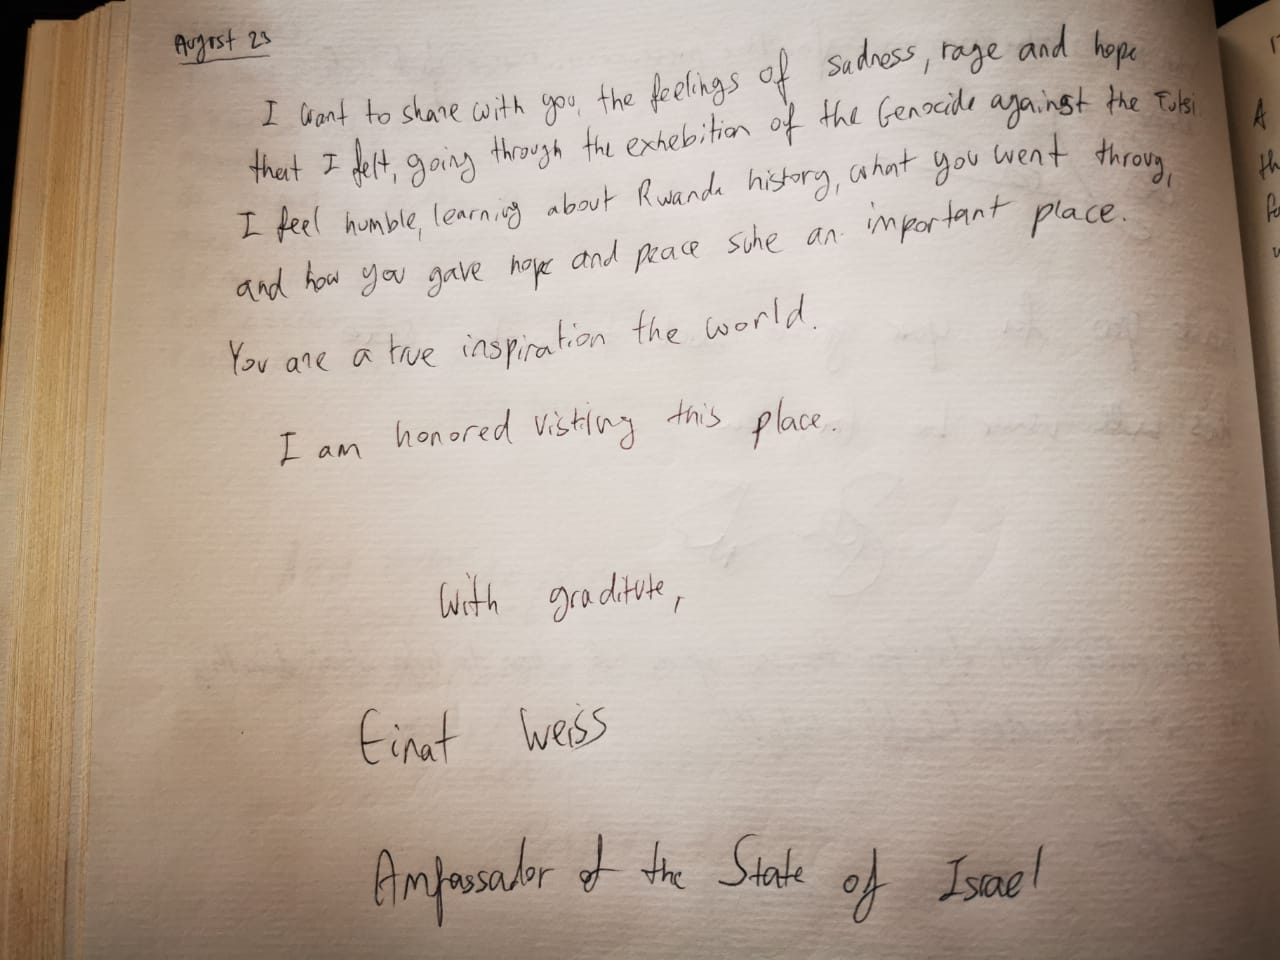 August 23
I want to share with you, the feelings of sadness, rage and hope
that I felt, going through the exhebition of the Genocide against the Tutsi
I feel humble, learning about Rwanda history, what you went throug,
and how you gave hope and peace suhe an important place.
You are a true inspiration the world.
I am honored visting this place.
With graditute,
Einat Weiss
Ambassador of the State of Israel
A
th